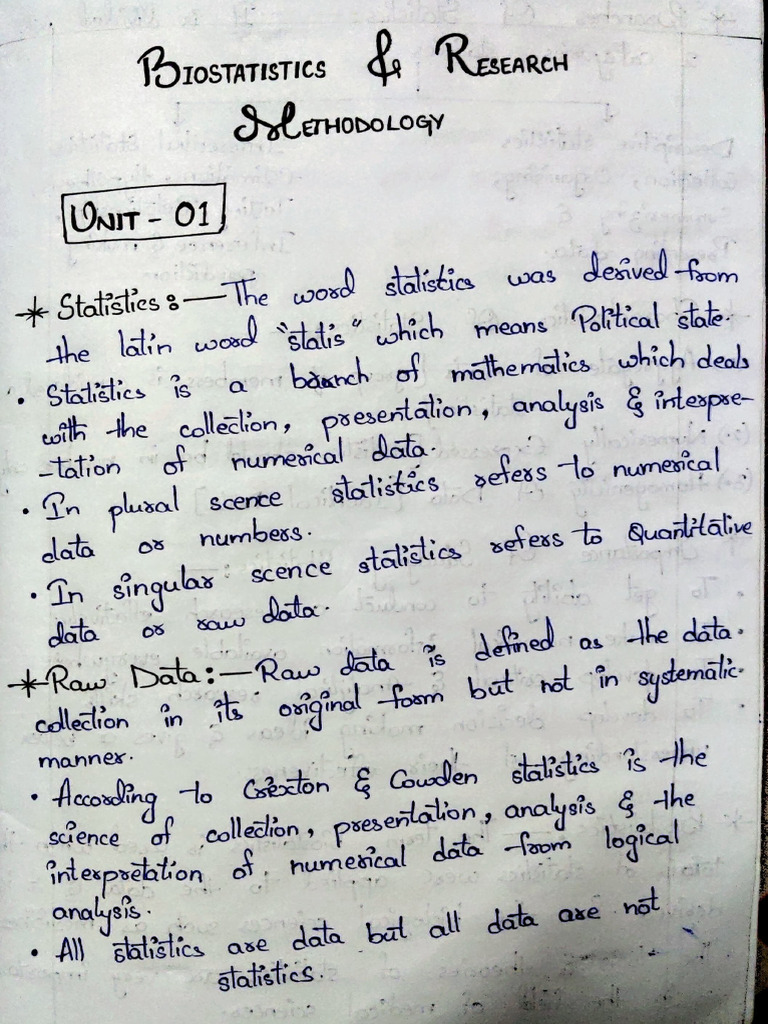 BIOSTATISTICS & RESEARCH
METHODOLOGY
UNIT - 01
* Statistics :- The word statistics was derived from
the latin word "statis" which means Political state.
• Statistics is a branch of mathematics which deals
with the collection, presentation, analysis & interpre-
-tation of numerical data.
• In plural scence statistics refers to numerical
data or numbers.
• In singular scence statistics refers to Quantitative
data or raw data.
* Raw Data :- Raw data is defined as the data.
collection in its original form but not in systematic.
manner.
• According to Crexton & Cowden statistics is the
science of collection, presentation, analysis & the
interpretation of numerical data from logical
analysis.
• All statistics are data but all data are not
statistics.